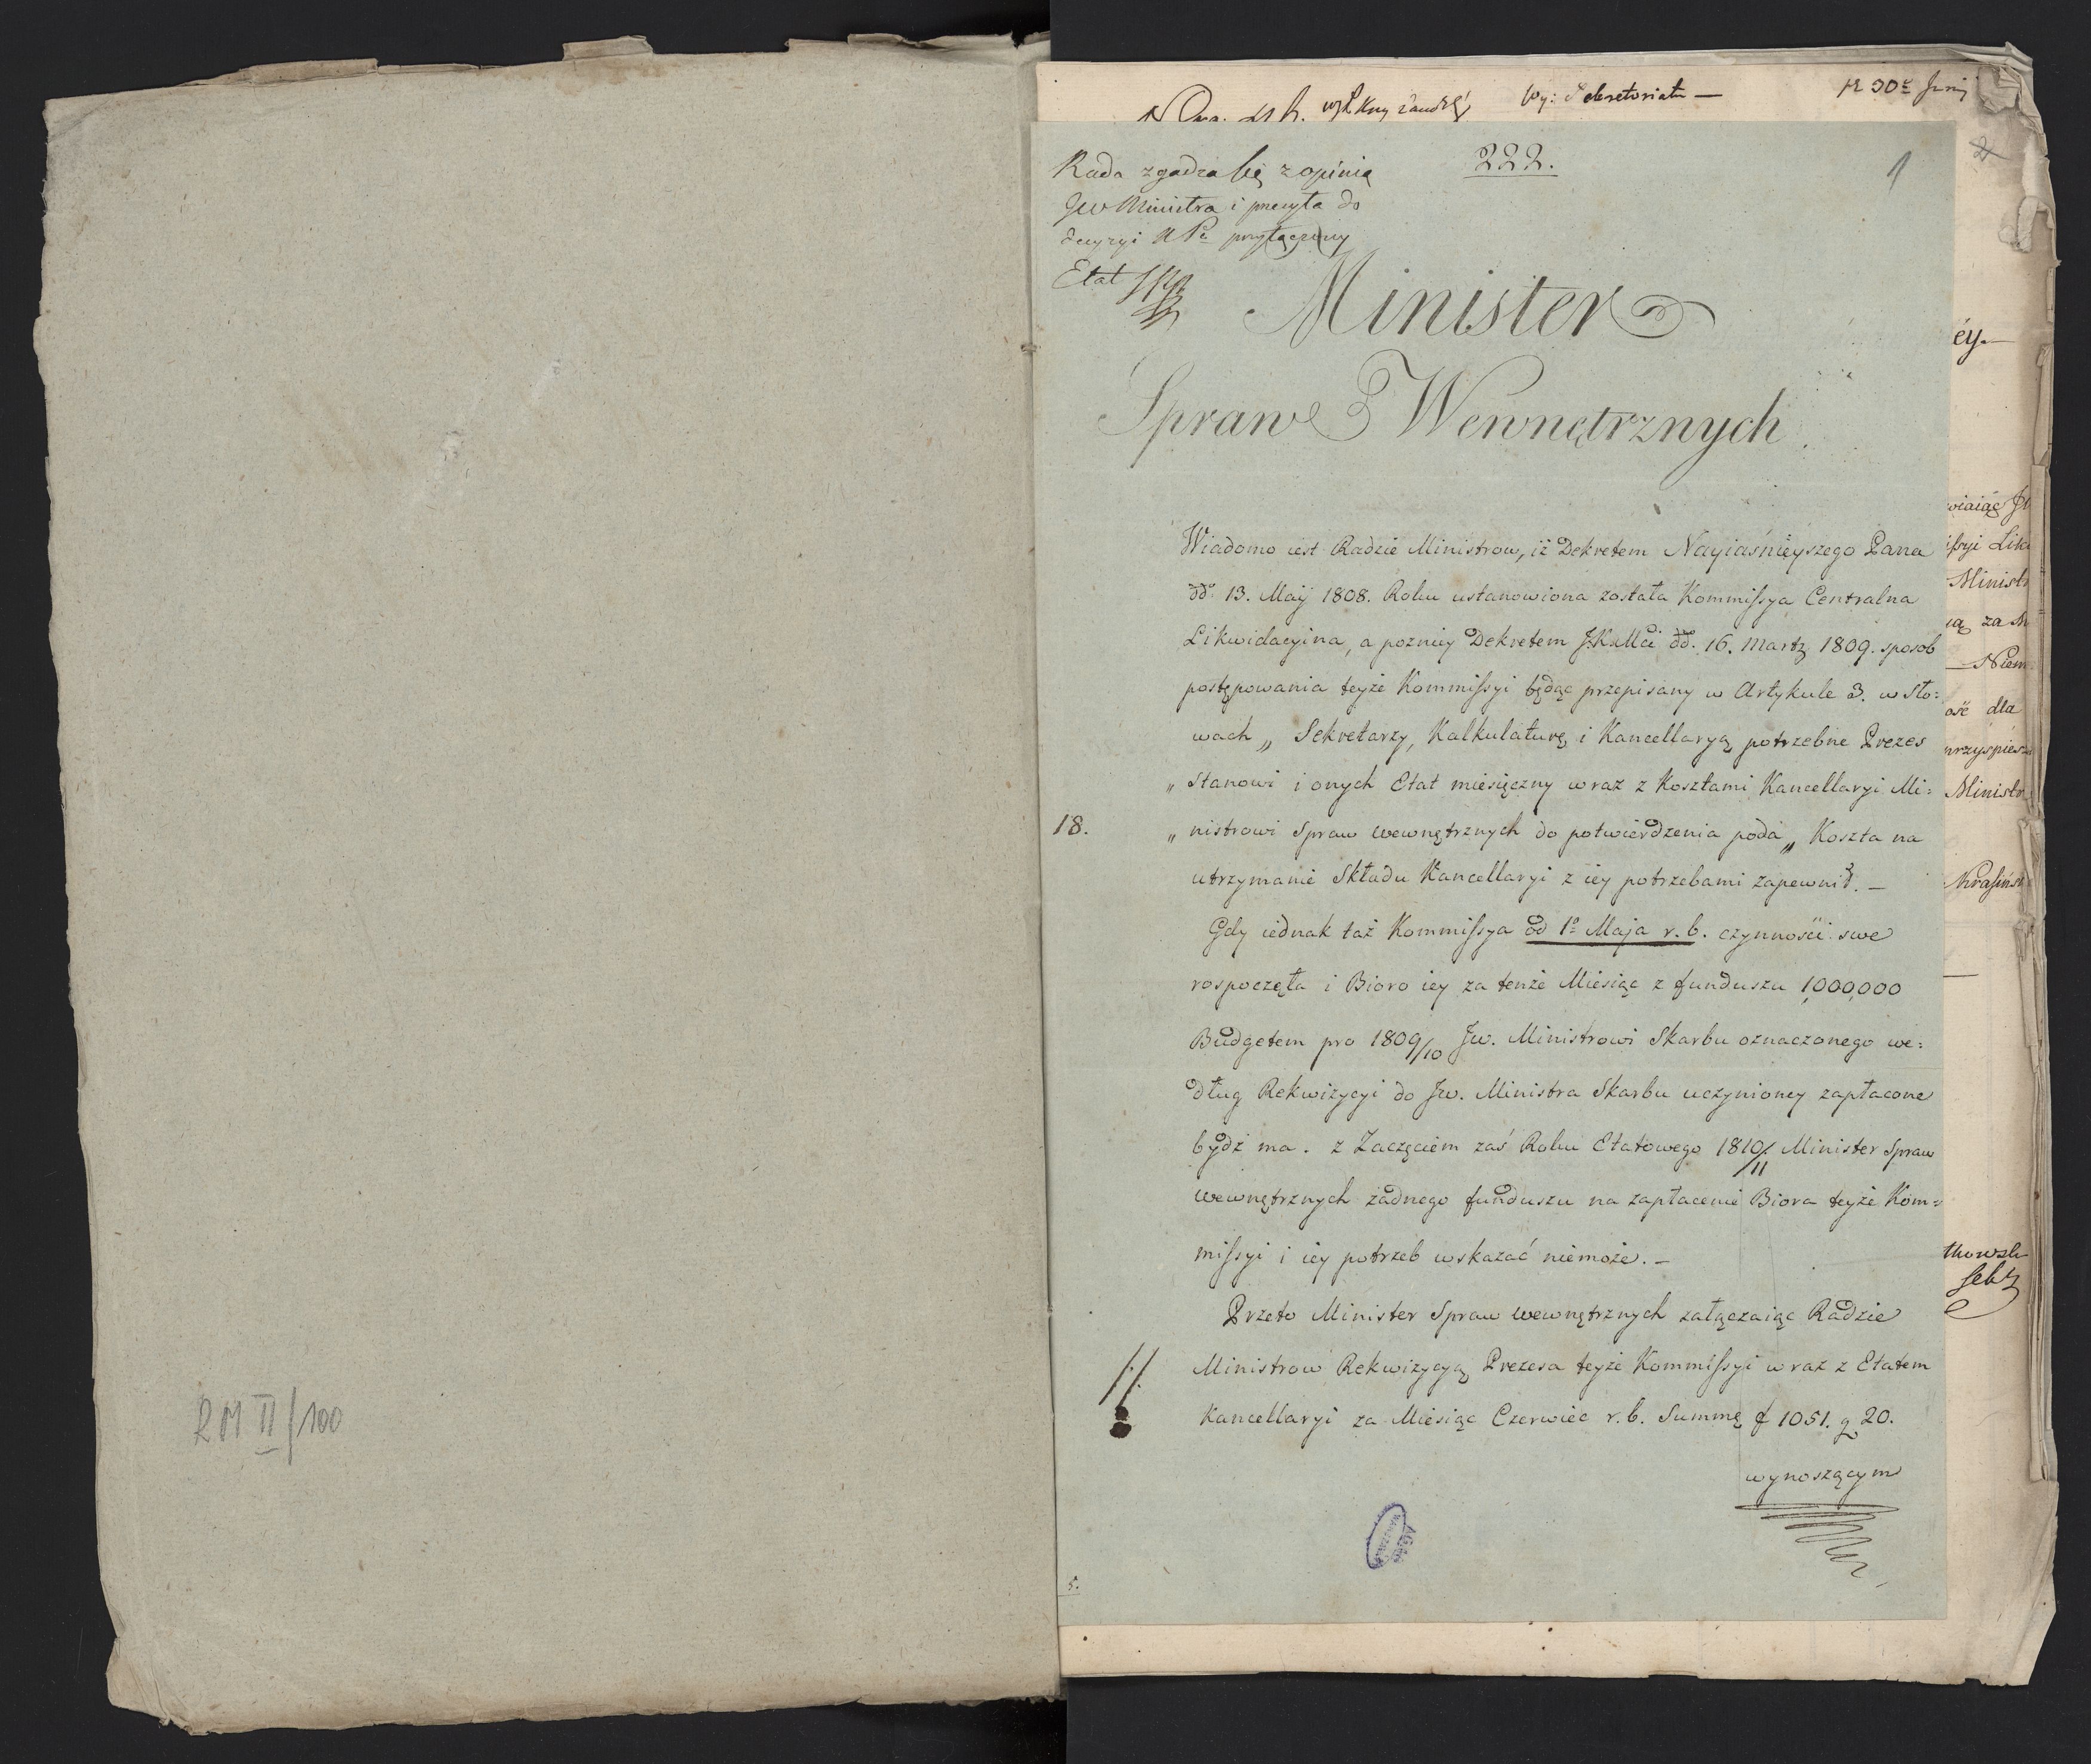 RM II/100
Wy: Sekretoriatu —
Rada zgadza się z opinią
JW Ministra i przesyła do
decyzyi NPa przyłączony
Etat
222.
1
Minister
Spraw Wewnętrznych
Wiadomo iest Radzie Ministrow, iż Dekretem Nayiaśnieyszego Pana
dd. 13. Maij 1808. Roku ustanowiona została Kommissya Centralna
Likwidacyina, a pozniey Dekretem J.K.Mci dd. 16. Martz 1809. sposob
postępowania teyże Kommissyi będąc przepisany w Artykule 3. w Sło:
wach „ Sekretarzy, Kalkulaturę i Kancellaryą potrzebne Prezes
„ Stanowi i onych Etat miesięczny wraz z Kosztami Kancellaryi Mi:
18.
„ nistrowi Spraw wewnętrznych do potwierdzenia poda „ Koszta na
utrzymanie Składu Kancellaryi z iey potrzebami zapewnił. —
Gdy iednak taż Kommissya od 1o Maja r. b. czynności swe
rospoczęła i Bioro iey za tenże Miesiąc z funduszu 1,000,000
Budgetem pro 1809/10 Jw. Ministrowi Skarbu oznaczonego we:
dług Rekwizycyi do Jw. Ministra Skarbu uczynioney zapłacone
bydź ma. z Zaczęciem zaś Roku Etatowego 1810/11 Minister Spraw
wewnętrznych żadnego funduszu na zapłacenie Biora teyże Kom=
missyi i iey potrzeb wskazać niemoże. —
Przeto Minister Spraw wewnętrznych załączaiąc Radzie
Ministrow Rekwizycyą Prezesa teyże Kommissyi wraz z Etatem
Kancellaryi za Miesiąc Czerwiec r. b. Summę f 1051. g 20.
wynoszącym
5.
éy.—
Minist
za
dla
Ministr